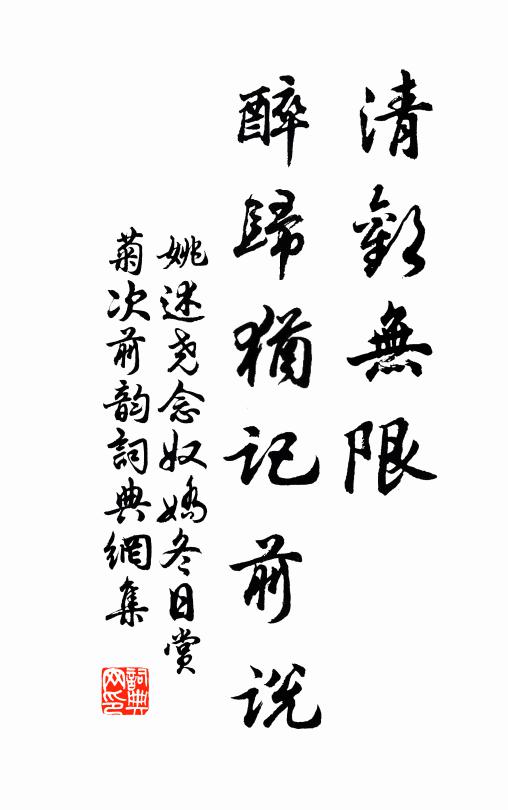 清歡無限
醉歸猶記前説
姚述堯念奴嬌冬日賞
菊次前韵詞典網集
詞典網印